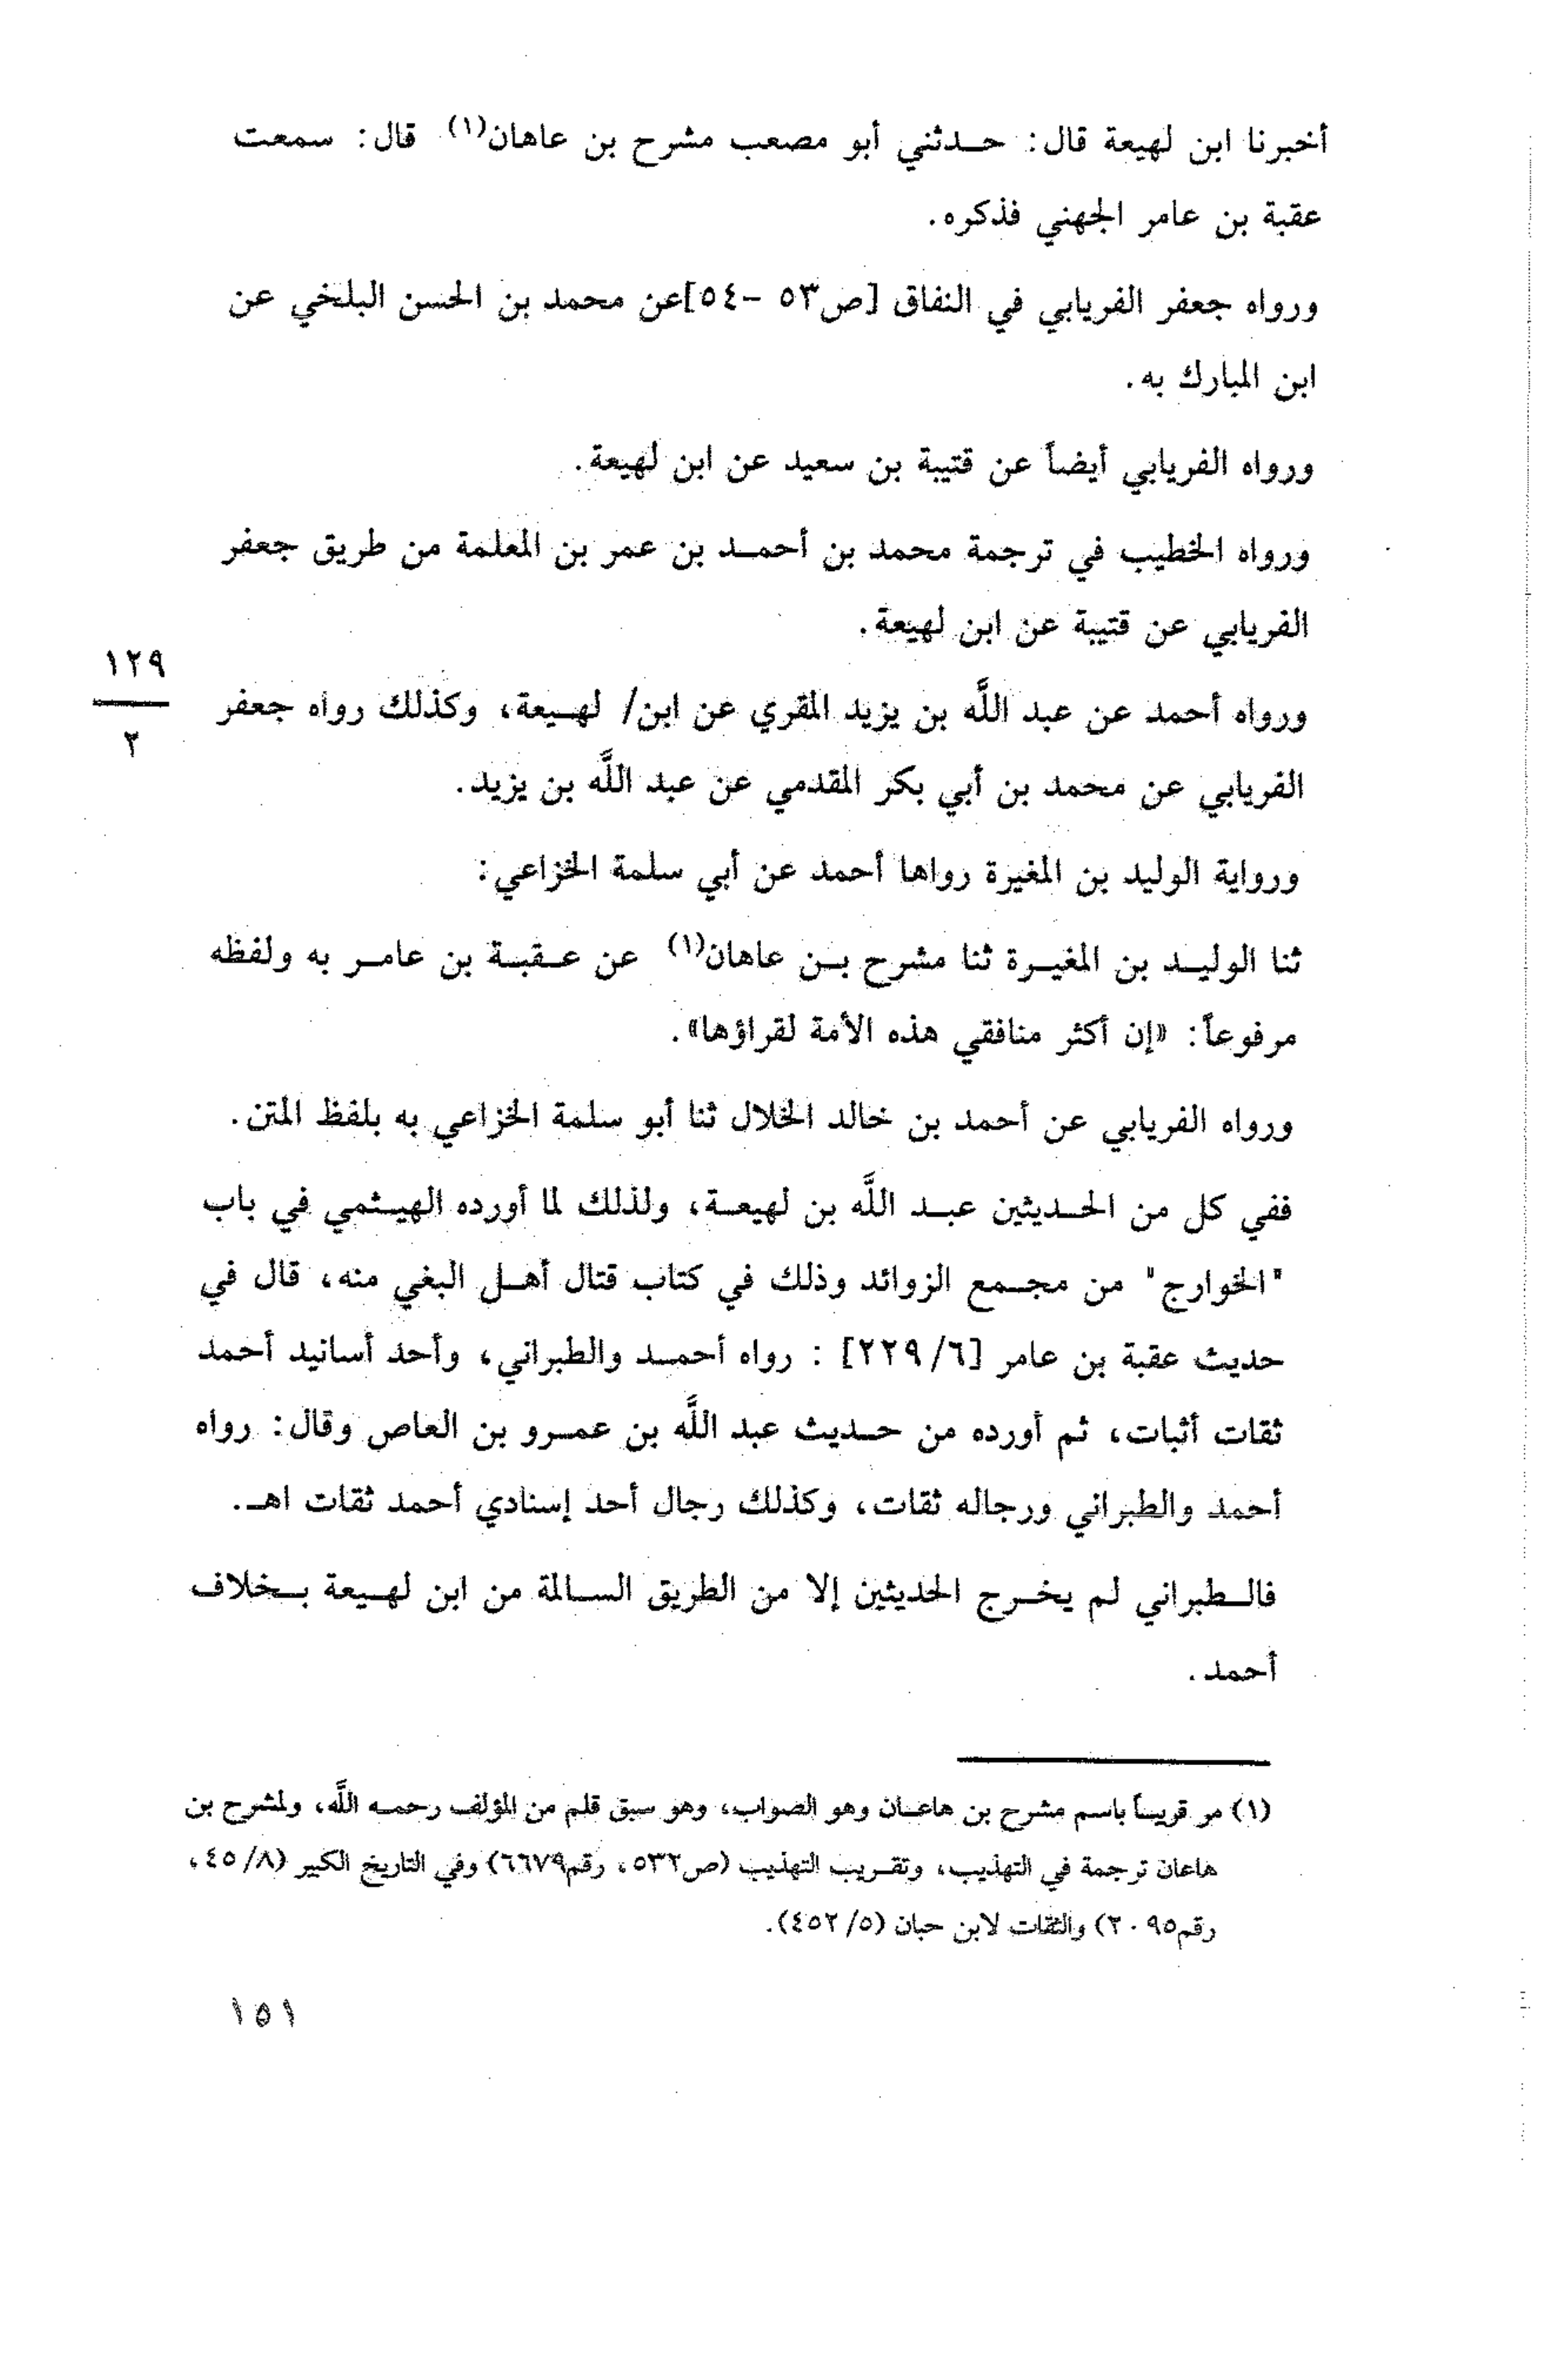 أخبرنا ابن لهيعة قال: حدثني أبو مصعب مشرح بن عاهان(١) قال: سمعت
عقبة بن عامر الجهني فذكره.
ورواه جعفر الفريابي في النفاق [ص٥٣ -٥٤]عن محمد بن الحسن البلخي عن
ابن المبارك به.
ورواه الفريابي أيضاً عن قتيبة بن سعيد عن ابن لهيعة.
ورواه الخطيب في ترجمة محمد بن أحمد بن عمر بن المعلمة من طريق جعفر
الفريابي عن قتيبة عن ابن لهيعة.
١٢٩
٢
ورواه أحمد عن عبد اللَّه بن يزيد المقري عن ابن/ لهيعة، وكذلك رواه جعفر
الفريابي عن محمد بن أبي بكر المقدمي عن عبد اللَّه بن يزيد.
ورواية الوليد بن المغيرة رواها أحمد عن أبي سلمة الخزاعي:
ثنا الوليد بن المغيرة ثنا مشرح بن عاهان(١) عن عقبة بن عامر به ولفظه
مرفوعاً: «إن أكثر منافقي هذه الأمة لقراؤها».
ورواه الفريابي عن أحمد بن خالد الخلال ثنا أبو سلمة الخزاعي به بلفظ المتن.
ففي كل من الحديثين عبد اللَّه بن لهيعة، ولذلك لما أورده الهيثمي في باب
"الخوارج" من مجمع الزوائد وذلك في كتاب قتال أهل البغي منه، قال في
حديث عقبة بن عامر [٦/ ٢٢٩] : رواه أحمد والطبراني، وأحد أسانيد أحمد
ثقات أثبات، ثم أورده من حديث عبد اللَّه بن عمرو بن العاص وقال: رواه
أحمد والطبراني ورجاله ثقات، وكذلك رجال أحد إسنادي أحمد ثقات اهـ.
فالطبراني لم يخرج الحديثين إلا من الطريق السالمة من ابن لهيعة بخلاف
أحمد.
(١) مر قريباً باسم مشرح بن هاعان وهو الصواب، وهو سبق قلم من المؤلف رحمه اللَّه، ولمشرح بن
هاعان ترجمة في التهذيب، وتقريب التهذيب (ص٥٣٢، رقم٦٦٧٩) وفي التاريخ الكبير (٨/ ٤٥،
رقم٢٠٩٥) والثقات لابن حبان (٥/ ٤٥٢).
١٥١